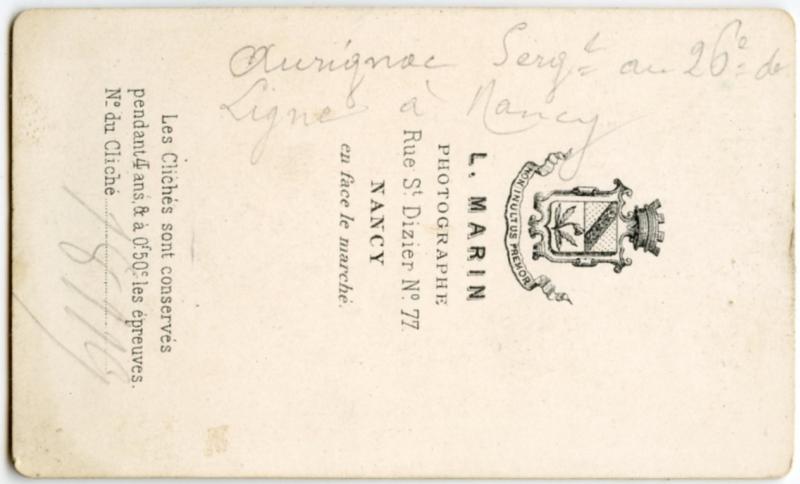 Aurignac Sergt au 26e de
Ligne à Nancy
NON INULTUS PREMOR
L. MARIN
PHOTOGRAPHE
Rue St Dizier No 77.
NANCY
en face le marché.
Les Clichés sont conservés
pendant 4 ans, & à 0f50c les épreuves.
No du Cliché